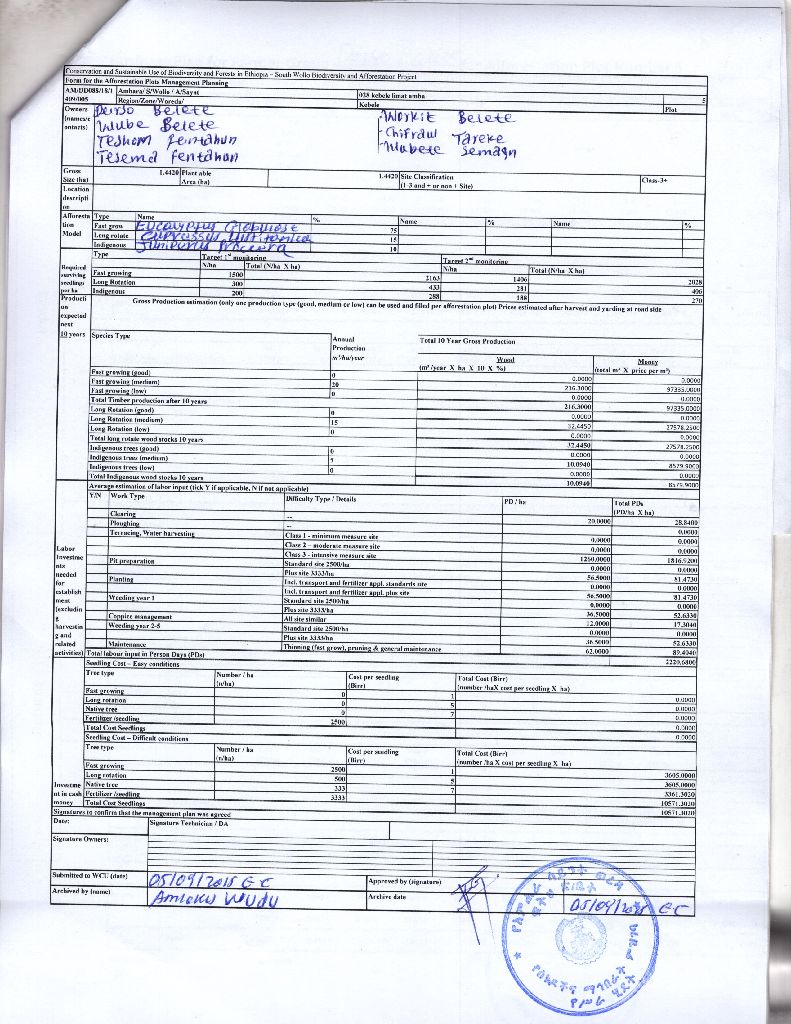 Conservation and Sustainable Use of Biodiversity and Forests in Ethiopia – South Wollo Biodiversity and Afforestation Project
Form for the Afforestation Plots Management Planning
AM/DD088/18/1 Amhara/ S/Wollo / A/Sayat 028 kebele limat amba 5
409/005 Region/Zone/Woreda/ Kebele Plot
Owners (names/contacts)
Belete Workit Belete
Wube Belete Chifraw Tareke
Teshom fentahun Wubete Semagn
Tesema fentahun
Gross Size (ha) 1.4420 Plant able Area (ha) 1.4420 Site Classification (1-3 and + or non + Site) Class-3+
Location description
Afforestation Model Type Name % Name % Name %
Fast grow Eucalyptus Globulose 75
Long rotate 15
Indigenous Juniperus Procera 10
Required surviving seedlings per ha Type Target 1st monitoring Target 2nd monitoring
N/ha Total (N/ha X ha) N/ha Total (N/ha X ha)
Fast growing 1500 2163 1406 2028
Long Rotation 300 433 281 406
Indigenous 200 288 188 270
Production expected next 10 years
Gross Production estimation (only one production type (good, medium or low) can be used and filled per afforestation plot) Prices estimated after harvest and yarding at road side
Species Type Annual Production m³/ha/year Total 10 Year Gross Production
Wood (m³ /year X ha X 10 X %) Money (total m³ X price per m³)
Fast growing (good) 0 0.0000 0.0000
Fast growing (medium) 20 216.3000 97335.0000
Fast growing (low) 0 0.0000 0.0000
Total Timber production after 10 years 216.3000 97335.0000
Long Rotation (good) 0 0.0000 0.0000
Long Rotation (medium) 15 32.4450 27578.2500
Long Rotation (low) 0 0.0000 0.0000
Total long rotate wood stocks 10 years 32.4450 27578.2500
Indigenous trees (good) 0 0.0000 0.0000
Indigenous trees (medium) 7 10.0940 8579.9000
Indigenous trees (low) 0 0.0000 0.0000
Total Indigenous wood stocks 10 years 10.0940 8579.9000
Labor Investments needed for establishment (excluding harvesting and related activities)
Average estimation of labor input (tick Y if applicable, N if not applicable)
Y/N Work Type Difficulty Type / Details PD / ha Total PDs (PD/ha X ha)
Clearing -- 20.0000 28.8400
Ploughing -- 0.0000
Terracing, Water harvesting Class 1 - minimum measure site 0.0000 0.0000
Class 2 – moderate measure site 0.0000 0.0000
Class 3 - intensive measure site 1260.0000 1816.9200
Pit preparation Standard site 2500/ha 0.0000 0.0000
Plus site 3333/ha 56.5000 81.4730
Planting Incl. transport and fertilizer appl. standards site 0.0000 0.0000
Incl. transport and fertilizer appl. plus site 56.5000 81.4730
Weeding year 1 Standard site 2500/ha 0.0000 0.0000
Plus site 3333/ha 36.5000 52.6330
Coppice management All site similar 12.0000 17.3040
Weeding year 2-5 Standard site 2500/ha 0.0000 0.0000
Plus site 3333/ha 36.5000 52.6330
Maintenance Thinning (fast grow), pruning & general maintenance 62.0000 89.4040
Total labour input in Person Days (PDs) 2220.6800
Seedling Cost – Easy conditions
Tree type Number / ha (n/ha) Cost per seedling (Birr) Total Cost (Birr) (number /haX cost per seedling X ha)
Fast growing 0 1 0.0000
Long rotation 0 5 0.0000
Native tree 0 7 0.0000
Fertilizer /seedling 2500 0.0000
Total Cost Seedlings 0.0000
Seedling Cost – Difficult conditions
Investment in cash money
Tree type Number / ha (n/ha) Cost per seedling (Birr) Total Cost (Birr) (number /ha X cost per seedling X ha)
Fast growing 2500 1 3605.0000
Long rotation 500 5 3605.0000
Native tree 333 7 3361.3020
Fertilizer /seedling 3333 10571.3020
Total Cost Seedlings 10571.3020
Signatures to confirm that the management plan was agreed
Date: Signature Technician / DA
Signature Owners:
Submitted to WCU (date) 05/09/2015 E.C Approved by (signature)
Archived by (name) Amlaku Wudu Archive date 05/09/2015 E.C